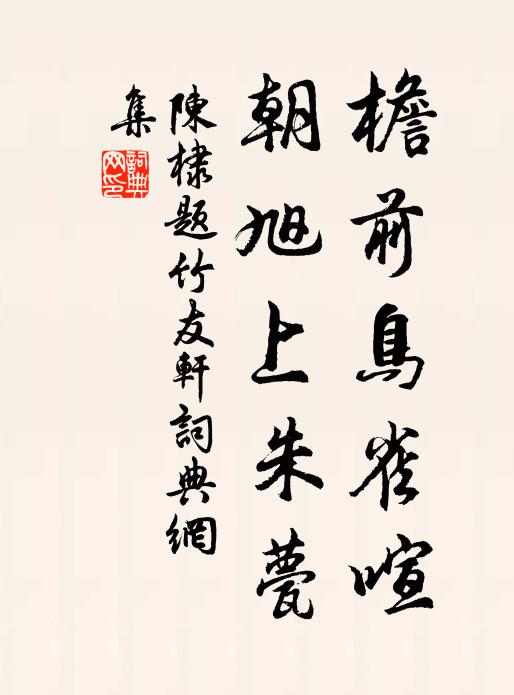 檐前鳥雀喧
朝旭上朱甍
陳棣題竹友軒詞典網
集
詞典
网印